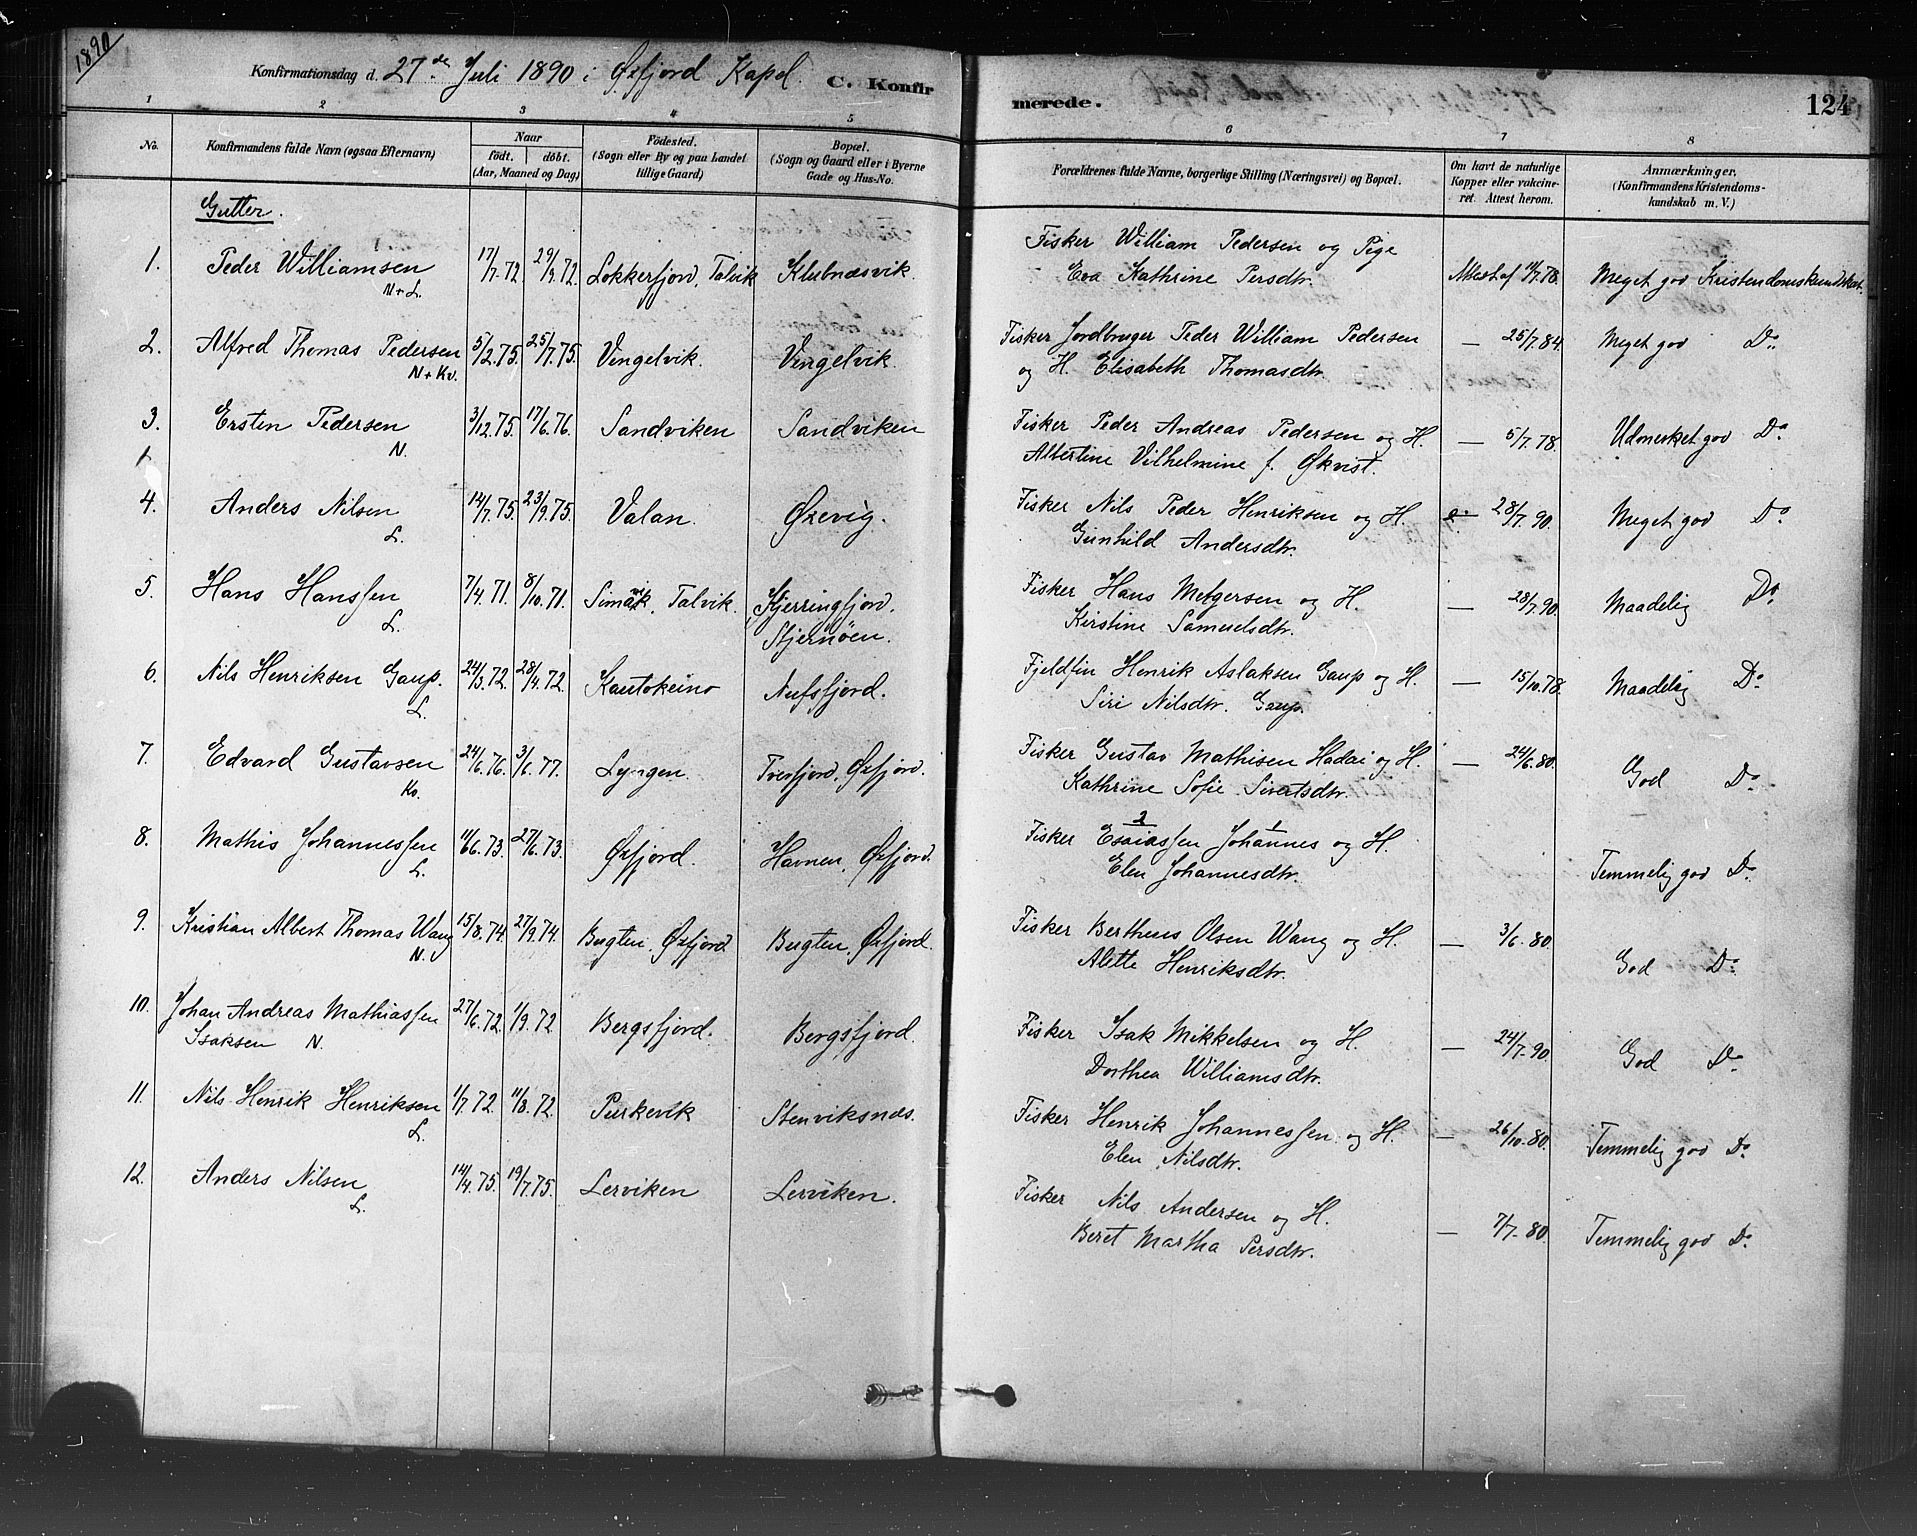 1890
Konfirmationsdag d. 27de Juli 1890 i Øxfjord Kapel. C. Konfirmerede. 124
1 2 3 4 5 6 7 8
No. Konfirmandens fulde Navn (ogsaa Efternavn) Naar født. døbt. (Aar, Maaned og Dag) Födested. (Sogn eller By og paa Landet tillige Gaard) Bopæl. (Sogn og Gaard eller i Byerne Gade og Hus-No. Forældrenes fulde Navne, borgerlige Stilling (Næringsvei) og Bopæl. Om havt de naturlige Kopper eller vakcineret. Attest herom. Anmærkninger. (Konfirmandens Kristendomskundskab m. V.)
Gutter.
1. Peder Williamsen N+L. 17/7.72. 29/9.72. Lokkerfjord, Talvik Klubnæsvik. Fisker William Pedersen og Pige
Eva Kathrine Persdtr. Attest af 11/7.78. Meget god Kristendomskundskab.
2. Alfred Thomas Pedersen N+Kv. 5/2.75. 25/7.75. Vingelvik. Vingelvik. Fisker Jordbruger Peder William Pedersen
og H. Elisabeth Thomasdtr. — 25/7.84. Meget god Do.
3. Ersten Pedersen N. 3/12.75. 17/6.76. Sandviken Sandviken Fisker Peder Andreas Pedersen og H.
Albertine Vilhelmine f. Økvist. — 5/7.78. Udmerket god Do
4. Anders Nilsen L. 14/7.75. 23/9.75. Valan. Øxevig. Fisker Nils Peder Henriksen og H.
Gunhild Andersdtr. 28/7.90. Meget god Do
5. Hans Hanssen L. 7/4.71. 8/10.71. Talvik. Stjernøen. Fisker Hans Metgersen og H.
Kirstine Samuelsdtr. — 28/7.90. Maadelig Do.
6. Nils Henriksen Gaup. L. 24/3.72. 28/4.72. Kautokeino Nufsfjord. Fjeldfin Henrik Aslaksen Gaup og H.
Siri Nilsdtr. Gaup. — 15/10.78. Maadelig Do.
7. Edvard Gustavsen Kv. 24/6.76. 3/6.77. Lyngen. Tverfjord, Øxfjord. Fisker Gustav Mathisen Hadai og H.
Kathrine Sofie Sivertsdtr. — 24/6.80. God Do.
8. Mathis Johannessen L. 11/6.73. 27/6.73. Øxfjord. Havnen, Øxfjord. Fisker 2 Esaiassen 1 Johannes og H.
Elen Johannesdtr. Temmelig god Do.
9. Kristian Albert Thomas Wang N. 15/8.74. 27/9.74. Bugten, Øxfjord. Bugten, Øxfjord. Fisker Bertheus Olsen Wang og H.
Alette Henriksdtr. — 3/6.80. God Do.
10. Johan Andreas Mathiassen
Isaksen N. 27/6.72. 1/9.72 Bergsfjord. Bergsfjord. Fisker Isak Mikkelsen og H.
Dorthea Williamsdtr. — 24/7.90. God Do.
11. Nils Henrik Henriksen L. 1/7.72. 11/8.72. Purkevik Stenviksnæs. Fisker Henrik Johannessen og H.
Elen Nilsdtr. — 26/10.80. Temmelig god Do.
12. Anders Nilsen L. 14/4.75. 19/7.75. Lerviken Lerviken. Fisker Nils Andersen og H.
Beret Martha Persdtr. — 7/7.80. Temmelig god Do.